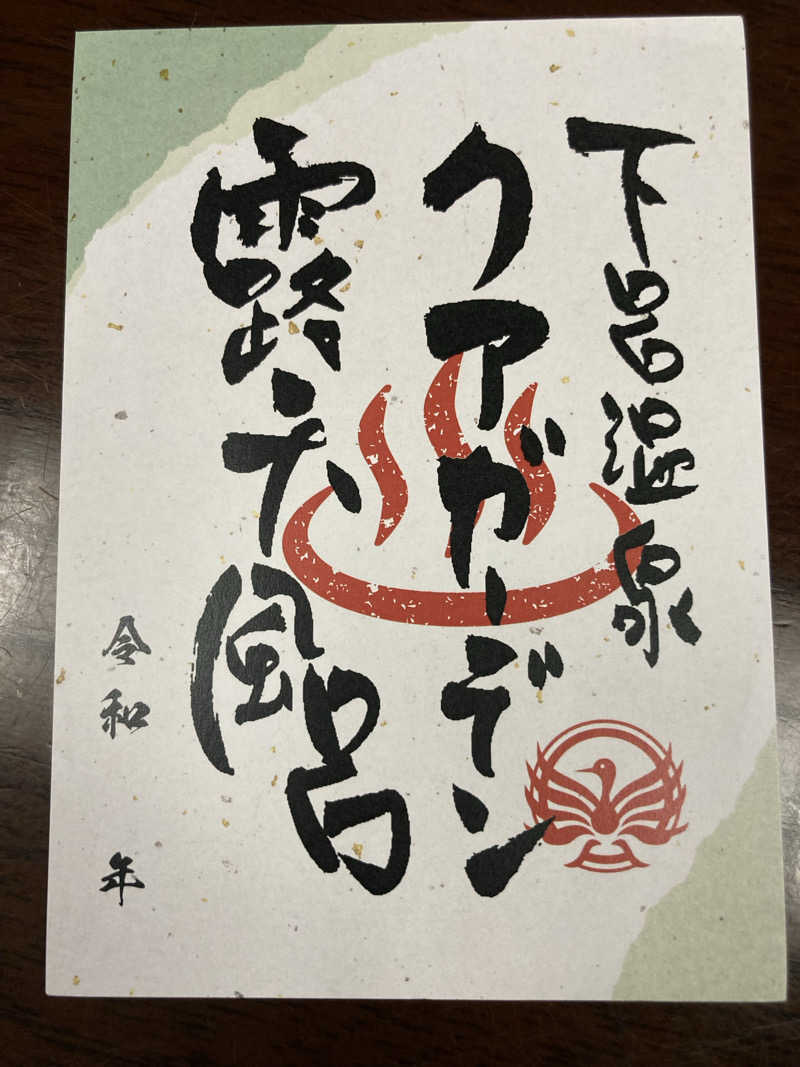 下呂温泉
クアガーデン
露天風呂
令和 年